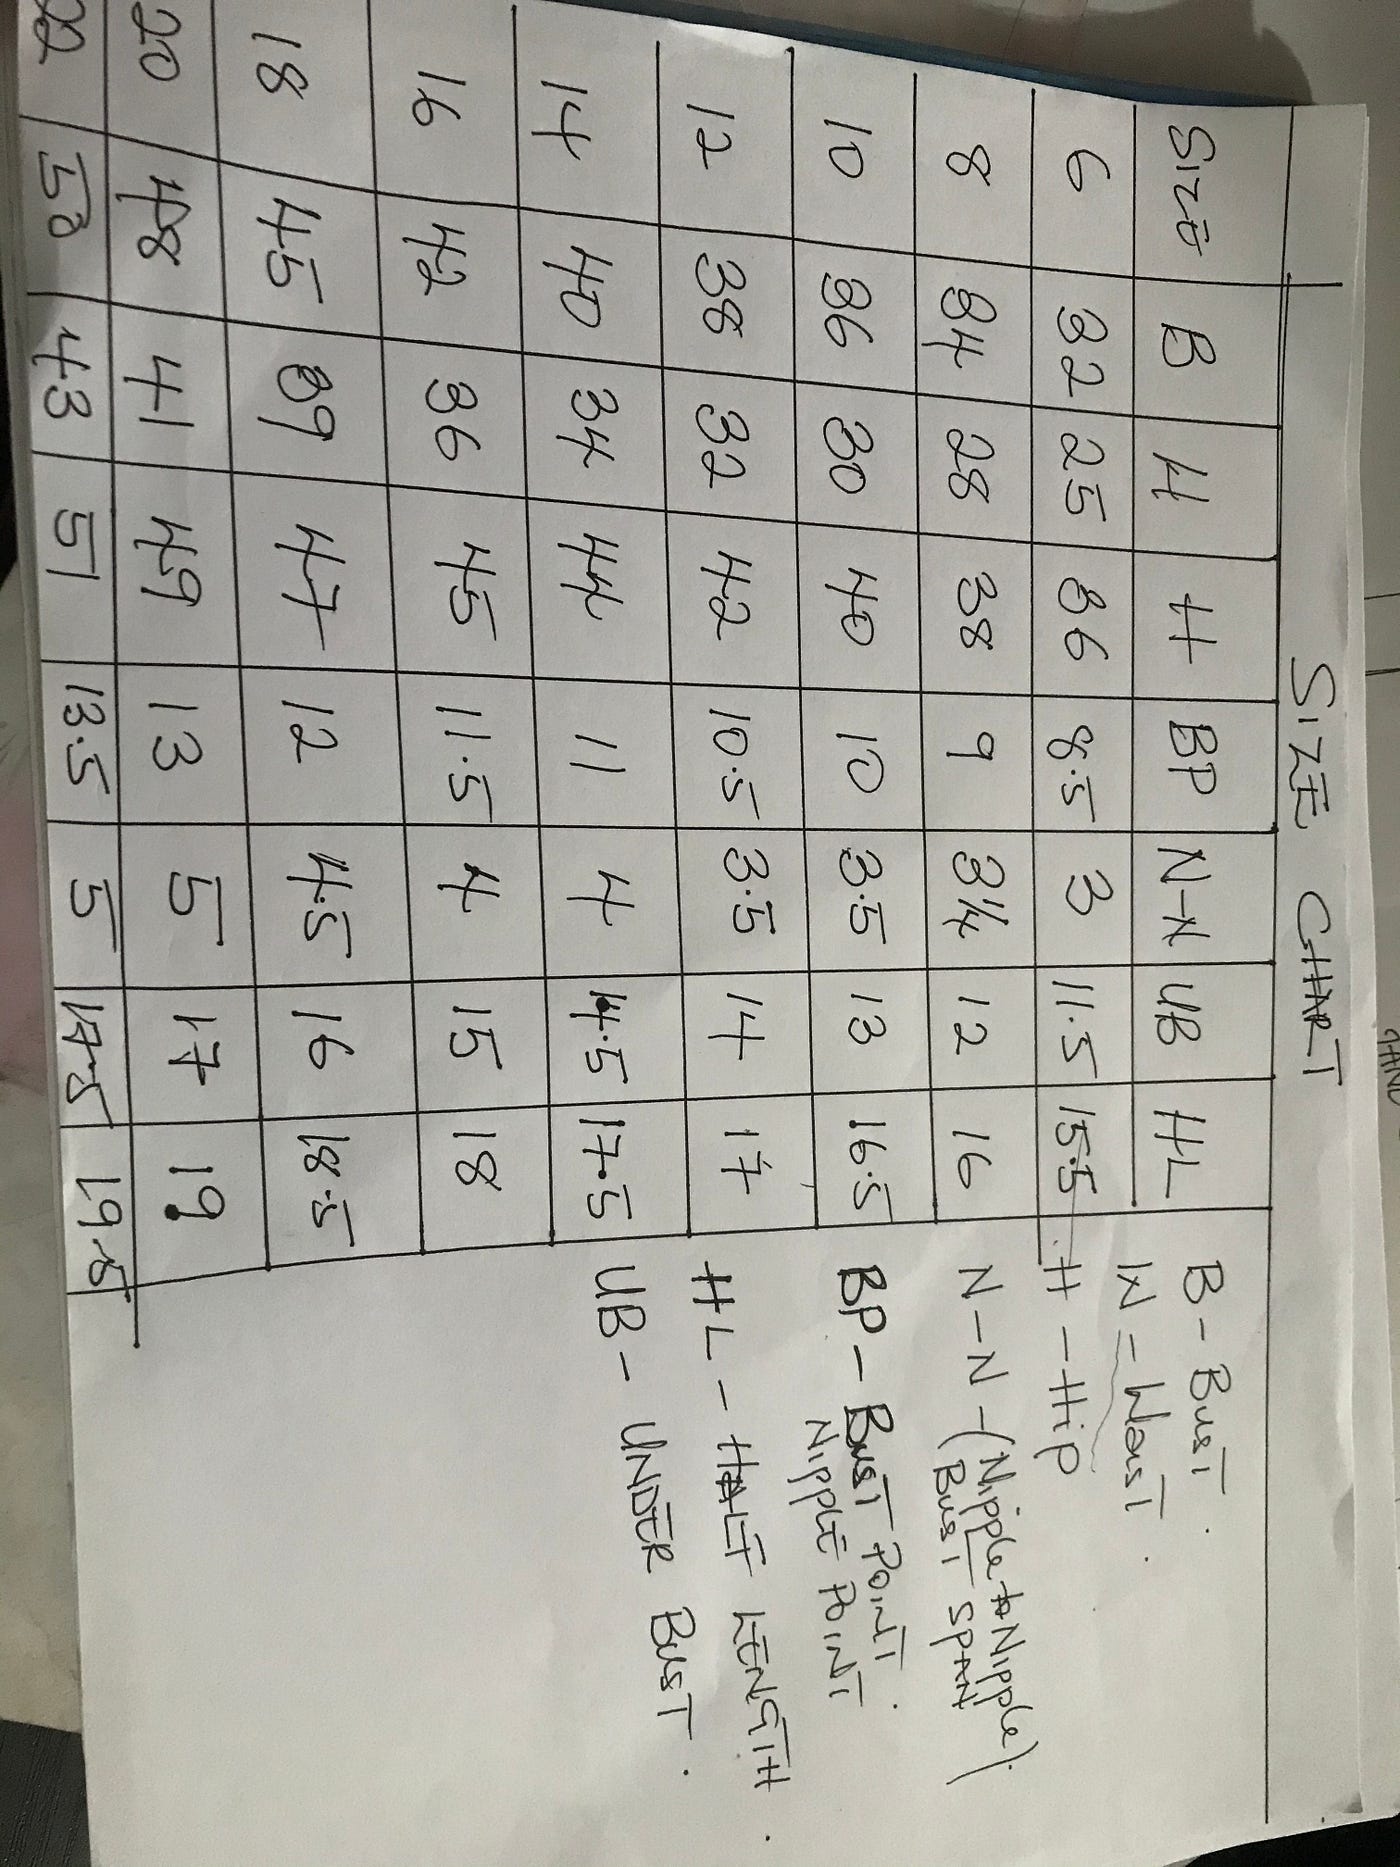 SIZE CHART
SIZE B W H BP N-N UB HL
6 32 25 36 8.5 3 11.5 15.5
8 34 28 38 9 3¼ 12 16
10 36 30 40 10 3.5 13 16.5
12 38 32 42 10.5 3.5 14 17
14 40 34 44 11 4 14.5 17.5
16 42 36 45 11.5 4 15 18
18 45 39 47 12 4.5 16 18.5
20 48 41 49 13 5 17 19
22 50 43 51 13.5 5 17.5 19.5
B - BUST.
W - WAIST.
H - Hip
N-N - (Nipple to Nipple)
(BUST SPAN
BP - BUST POINT.
NIPPLE POINT
HL - HALF LENGTH.
UB - UNDER BUST.